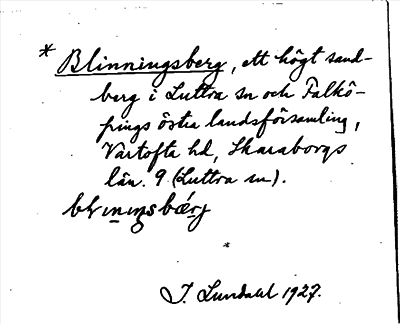 * Blinningsberg, ett högt sand-
berg i Luttra sn och Falkö-
pings östra landsförsamling,
Vartofta hd, Skaraborgs
län. 9 (Luttra sn).
J. Lundahl 1927.